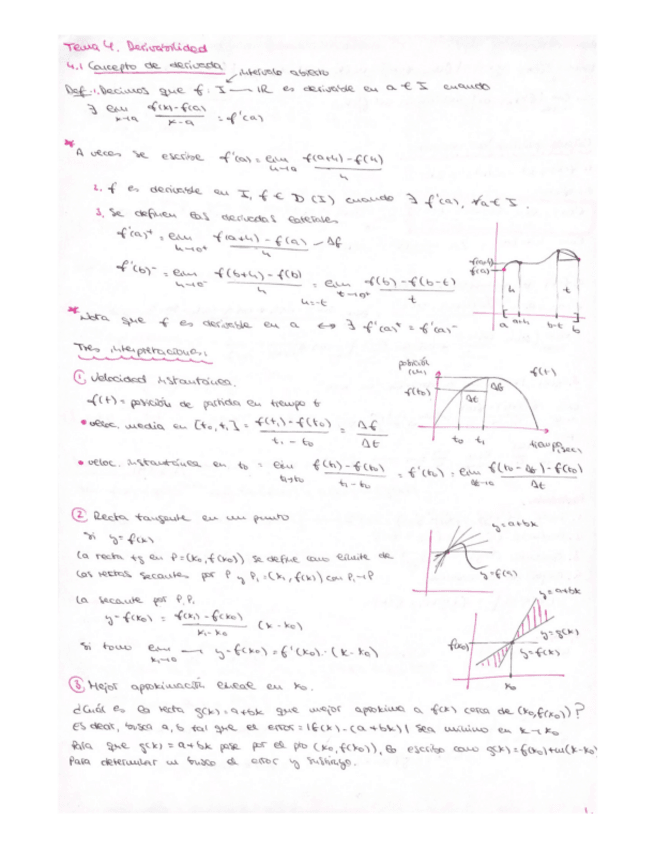 Tema 4. Derivabilidad
4.1 Concepto de derivada
intervalo abierto
Def: 1. Decimos que f: I → IR es derivable en a ∈ I cuando
∃ lim x→a f(x)-f(a) / x-a = f'(a)
* A veces se escribe f'(a) = lim h→0 f(a+h)-f(h) / h
2. f es derivable en I, f ∈ D(I) cuando ∃ f'(a), ∀a ∈ I.
3. Se definen las derivadas laterales
f'(a)+ = lim h→0+ f(a+h)-f(a) / h → Δf
f'(b)- = lim h→0- f(b+h)-f(b) / h = h=-t lim t→0+ f(b)-f(b-t) / t
f(a+h)
f(a)
h
t
a a+h b-t b
* Nota que f es derivable en a ⇔ ∃ f'(a)+ = f'(a)-
Tres interpretaciones:
① Velocidad instantánea.
f(t) = posición de partida en tiempo t
• veloc. media en [t0, t1] = f(t1)-f(t0) / t1-t0 = Δf / Δt
posición
f(t0)
f(t)
Δf
Δt
t0 t1
• veloc. instantánea en t0 = lim t1→t0 f(t1)-f(t0) / t1-t0 = f'(t0) = lim Δt→0 f(t0-Δt)-f(t0) / Δt
② Recta tangente en un punto
Si y = f(x)
La recta tg en P=(x0, f(x0)) se define como límite de
las rectas secantes por P y P1=(x1, f(x1)) con P1→P
y=a+bx
y=f(x)
La secante por P, P1
y-f(x0) = f(x1)-f(x0) / x1-x0 (x-x0)
Si tomo lim x1→x0 → y-f(x0) = f'(x0)·(x-x0)
y=a+bx
y=g(x)
y=f(x)
f(x0)
x0
③ Mejor aproximación lineal en x0.
¿Cuál es la recta g(x)=a+bx que mejor aproxima a f(x) cerca de (x0, f(x0))?
Es decir, busca a, b tal que el error = |f(x)-(a+bx)| sea mínimo en x→x0
Para que g(x)=a+bx pase por el pto (x0, f(x0)), lo escribo como g(x)=f(x0)+m(x-x0)
Para determinar m busco el error y
1.